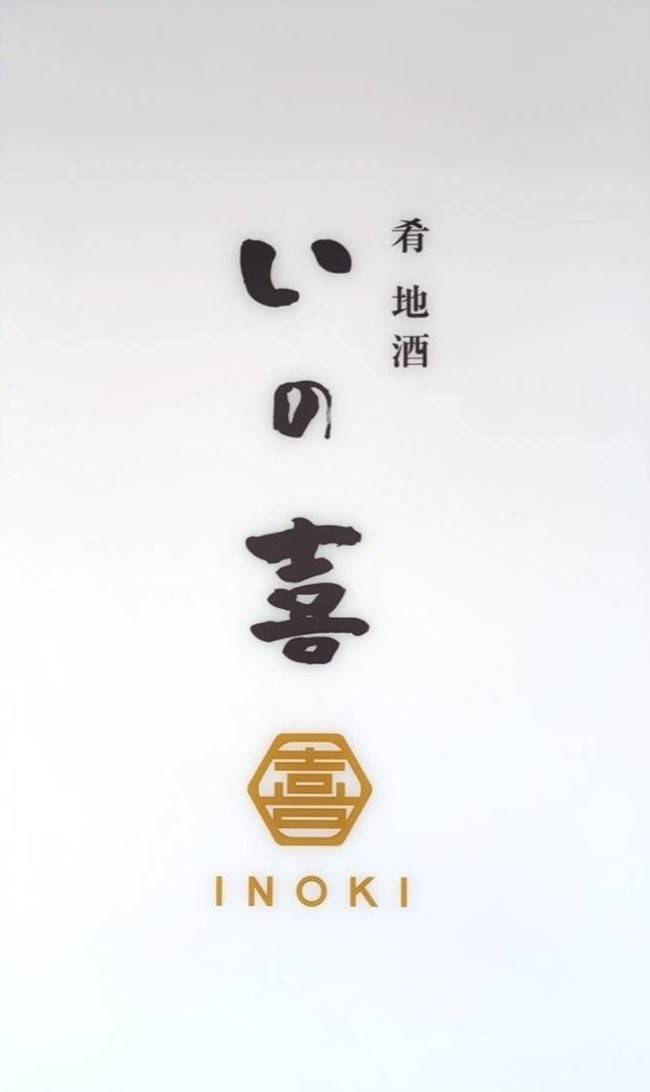 肴 地酒
いの喜
喜
INOKI